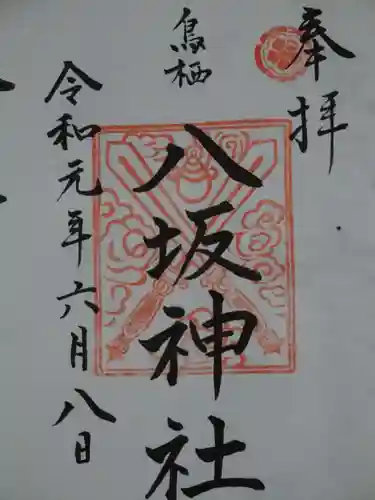 奉拝
鳥栖
八坂神社
令和元年六月八日